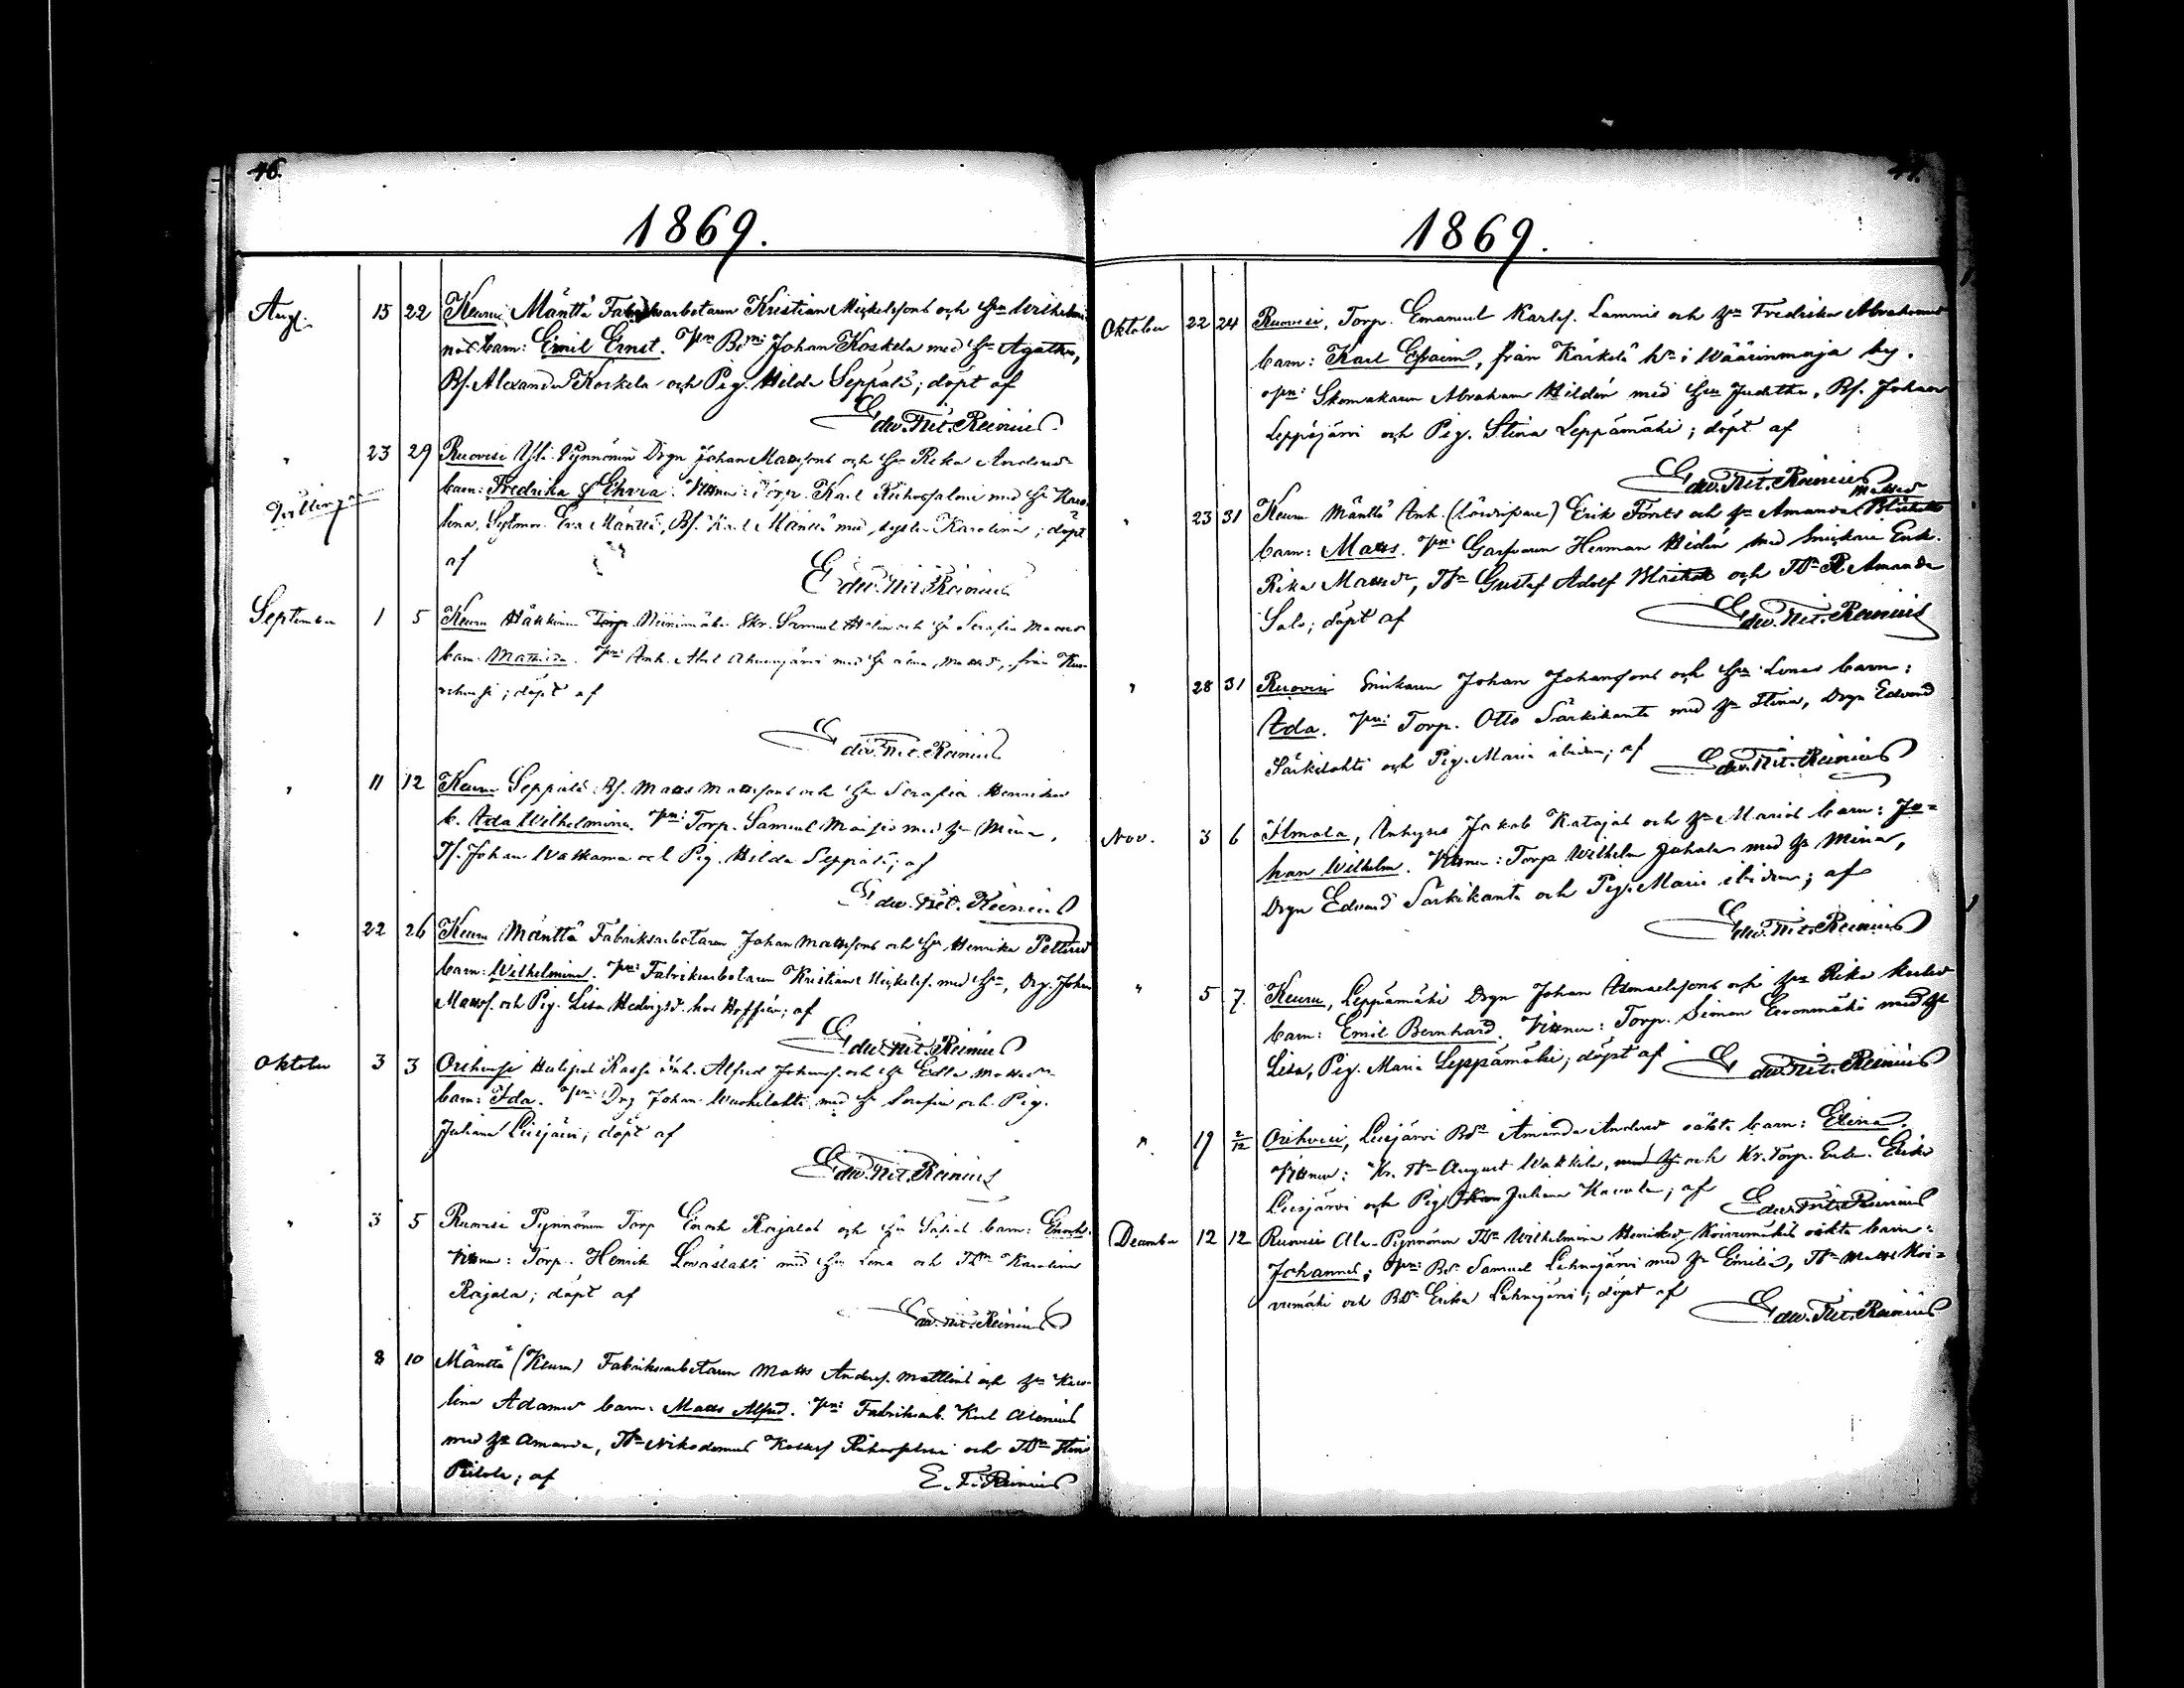 46.
1869.
Aug. 15 22 Keuru, Mänttä Fabriksarbetaren Kristian Michelssons och Hu Wilhelmi-
nas barn: Emil Ernst. Johan Koskela med Hu Agatha,
Bs. Alexander Koskela och Pig. Hilda Seppälä; döpt af
Edw. Nit. Reinius
" 23 29 Ruovesi Yli-Pynnönen Drgn Johan Mattssons och Hu Rika Andersdr
Tvillingar barn: Fredrika & Edvra. Vittnen: Torp. Karl Riihosalmi med Hu Karo-
lina, Eva Mänttä, Bs. Karl Mänttä med syster Karolina; döpt
af
Edw. Nit. Reinius
September 1 5 Keuru Häkkinen Torp. Niinimäki Skr. Samuel och Hu Serafia Mattsdr
barn Mathilda. Inh. Abel Ahvenjärvi med Hu från
; döpt af
Edw. Nit. Reinius
" 11 12 Keuru Seppälä Bs. Matts Mattssons och Hu Serafia Henriksdr
b. Ada Wilhelmina. Torp. Samuel med Hu Mina,
Johan Watkama och Pig. Hilda Seppälä; af
Edw. Nit. Reinius
" 22 26 Keuru Mänttä Fabriksarbetaren Johan Mattssons och Hu Henrika Pettersdr
barn: Wilhelmina. Fabriksarbetaren Kristian Michelss. med Hu, Drg. Johan
Matts. och Pig. Lisa Hedvigsdr. hos Hoffrén; af
Edw. Nit. Reinius
Oktober 3 3 Orihvesi Inh. Alfred Johanss. och Hu Edla Mattsdr
barn: Ida. Drg Johan Wuohelahti med Hu Serafia och Pig.
Juliana Liesjärvi; döpt af
Edw. Nit. Reinius
" 3 5 Ruovesi Pynnönen Torp Enoch Rajalas och Hu Sofias barn: Enoch.
Vittnen: Torp. Henrik Leväslahti med Hu Lena och Karolina
Rajala; döpt af
Edw. Nit. Reinius
8 10 Mänttä (Keuru) Fabriksarbetaren Matts Anderss. Mattlins och Hu Karo-
lina Adamsdr barn. Matts Alfred. Fabriksarb. Karl Alenius
med Hu Amanda, Nikodemus Riihosalmi och Stina
; af
E. F. Reinius
47.
1869.
Oktober 22 24 Ruovesi, Torp. Emanuel Karlss. Lamnis och Hu Fredrika Abrahamsdr
barn: Karl Efraim, från Kärkelä i Wäärinmaja by.
Skomakaren Abraham Hildén med Hu Juditha, Bs. Johan
Leppäjärvi och Pig. Stina Leppämäki; döpt af
Edw. Nit. Reinius
Mattsdr
" 23 31 Keuru Mänttä Inh. Erik Forss och Hu Amanda
barn: Matts. Garfvaren Herman Hidén med Smickare Enk.
Rika Mattsdr, Gustaf Adolf och Amanda
Salo; döpt af
Edw. Nit. Reinius
" 28 31 Ruovesi Snickaren Johan Johanssons och Hu Lenas barn:
Ada. Torp. Otto Särkikanta med Hu Stina, Drgn Edvard
Särkilahti och Pig. Maria ibidem; af
Edw. Nit. Reinius
Nov. 3 6 Ilmala, Inhyses Jakob Katajas och Hu Marias barn: Jo-
han Wilhelm. Vittnen: Torp Wilhelm Juhala med Hu Mina,
Drgn Edvard Särkikanta och Pig. Maria ibidem; af
Edw. Nit. Reinius
" 5 7. Keuru, Leppämäki Drgn Johan Ismaelssons och Hu Rika Karlsdr
barn: Emil Bernhard. Vittnen: Torp. Simon Eeronmäki med Hu
Lisa, Pig. Maria Leppämäki; döpt af
Edw. Nit. Reinius
" 19 2/12 Orihvesi, Liesjärvi Amanda Andersdr oäkta barn: Elina.
Vittnen: Kr. August Wakkila, med Hu och Kr. Torp. Enk. Erika
Liesjärvi och Pig. Juliana Kaurala; af
Edw. Nit. Reinius
December 12 12 Ruovesi Ala-Pynnönen Wilhelmina Henriksdr Koivumäkis oäkta barn:
Johannes; Samuel Lehmijärvi med Hu Emilia, Matts Koi-
vumäki och Erika Lehmijärvi; döpt af
Edw. Nit. Reinius